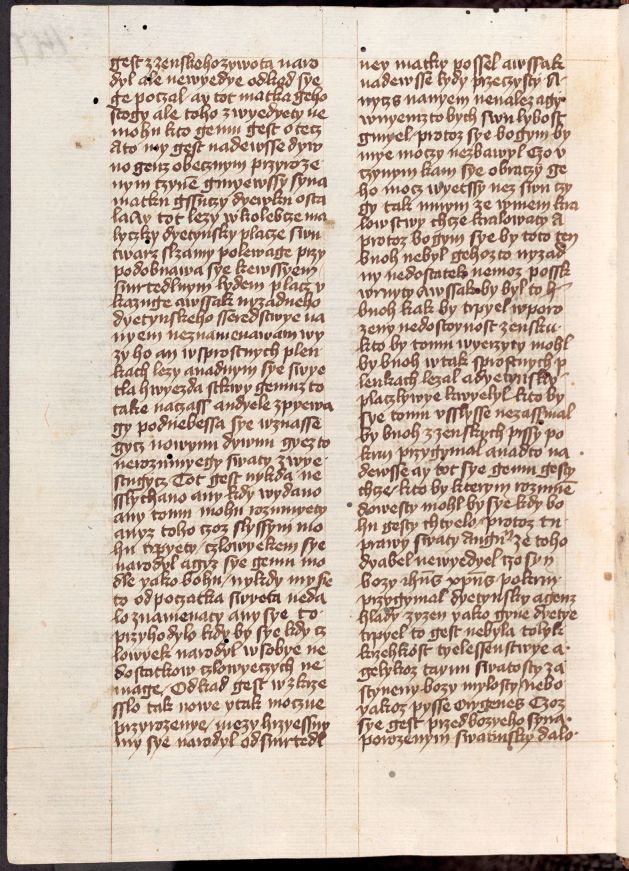 gest z zenskeho zywota naro
dyl ale newyedye odkad sye
ge poczal ay tot matka geho
stogy ale toho zwyedyety ne
mohu kto gemu gest otecz
A to my gest nadewsse dyw
no genz obecznym przyroze
nym czynē gmyewssy syna
matku gssuczy dyewku osta
la Ay tot lezy w kolebcze ma
lyczky dyetynsky placze swu
twarz slzamy polewage przy
podobnawa sye k ewssyem
smrtedlnym lydem placz v
kazuge awssak nyzadneho
dyetynskeho sseredstwye na
nyem neznamenawam wy
zy ho an w sprostnych plen
kach lezy anadnym sye swye
tla hwyezda stkwy gemuz to
take naczass andyele zpyewa
gy podnebessa sye wznasse
gycz nowymy dywmy gyez to
nerozumyegy swaty zwye
stugycz Tot gest nykda ne
sslychano any kdy wydano
any tomu mohu rozumyety
anyz toho czoz slyssym mo
hu trpyety czlowyekem sye
narodyl agyz sye gemu mo
dle yako bohu nykdy my sye
to od poczatka swyeta neda
lo znamenaty any sye to
przyhodylo kdy by sye kdy cz
lowyek narodyl w sobye ne
dostatkow czlowyeczych ne
mage Odkad gest wzkrze
sslo tak nowe ytak moczne
przyrozenye mezy hrzyessny
my sye narodyl od smrtedl
ney matky possel awssak
nadewsse lydy przeczysty A
nyczs nanyem nenalezagy
wnyemz to bych swu lybost
gmyel protoz sye bogym by
mye moczy nezbawyl Czo v
czynym kam sye obraczy ge
ho mocz wyetssy nez swu czy
gy tak mnym ze w mem kra
lowstwy chcze kralowaty A
protoz bogym sye by toto ten
buoh nebyl gehoz to nyzad
ny nedostatek nemoz possk
wrnyty Awssakoby byl to b
buoh kak by trpyel w poro
zeny nedostoynost zensku
kto by tomu wyerzyty mohl
by buoh w tak sprostnych p
lenkach lezal adyetynsky
placzlywye kwyelyl kto by
sye tomu vsslysse nezassmal
by buoh z zenskych prssy po
krm przygymal anadto na
dewsse ay tot sye gemu gesty
chcze kto by kterym rozumē
dowesty mohl by sye kdy bo
hu gesty chtyelo protoz tu
prawy swaty Augu ze toho
dyabel newyedyel czo syn
bozy ihus xpus pokrm
przygymal dyetynsky agenz
hlad zyzen yako gyne dyetye
trpyel to gest nebyla tolyk
krzehkost tyelessenstwye a
gelykoz taym swatosty za
styneny bozy mylosty nebo
yakoz pysse Orygenes Czoz
sye gest przed bozyeho syna
porozenym swatynsky dalo